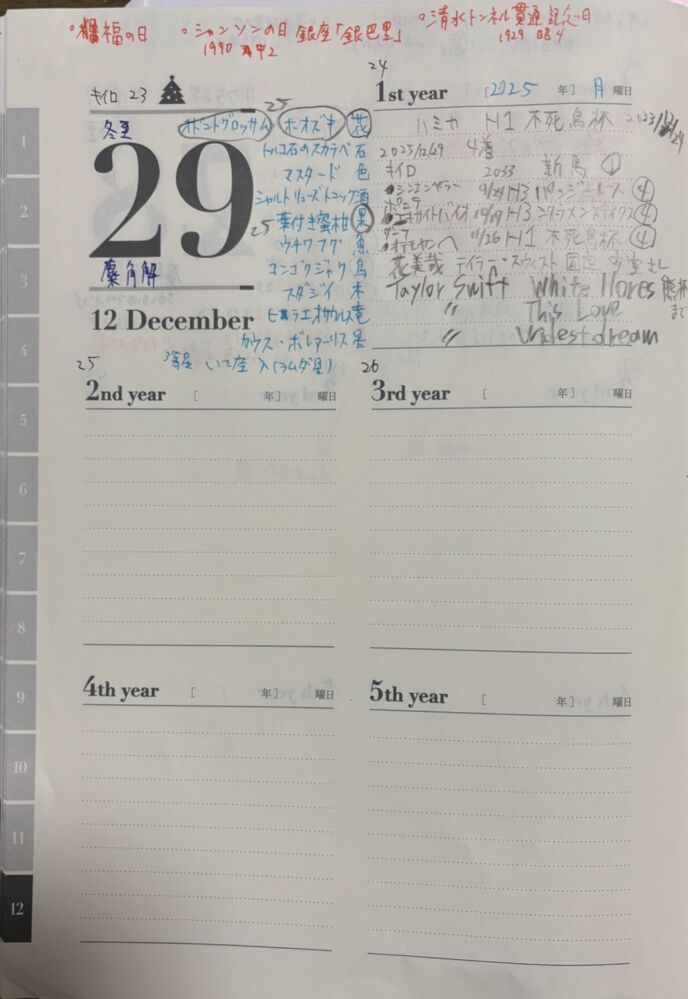 °福の日 °シャンソンの日 銀座「銀巴里」 °清水トンネル貫通記念日
1990 1929 昭4
キイロ 23
冬至
29
麋角解
12 December
25
オドントグロッサム ホオズキ 花
トルコ石のスカラベ 石
マスタード 色
シャルトリューズトニック 酒
25 葉付き蜜柑 果
ウチワフグ 魚
コンゴクジャク 鳥
スダジイ 木
ヒメラエオサウルス 竜
カウス・ボレアーリス 星
いて座 λ(ラムダ星)
24
1st year [2025 年] 月 曜日
ハミヤ H1 不死鳥杯
2025/12/29 4着
キイロ 2033 新馬 ①
●シンナンペラー 9/24 H3 ④
●エキサイトバイオ H3 ④
11/26 H1 不死鳥杯 ④
花美哉 テイラー・スウィスト 固定
Taylor Swift White Hores
〃 This Love
〃 Wildest dream
まで
25
2nd year [ 年] 曜日
26
3rd year [ 年] 曜日
4th year [ 年] 曜日
5th year [ 年] 曜日
1
2
3
4
5
6
7
8
9
10
11
12